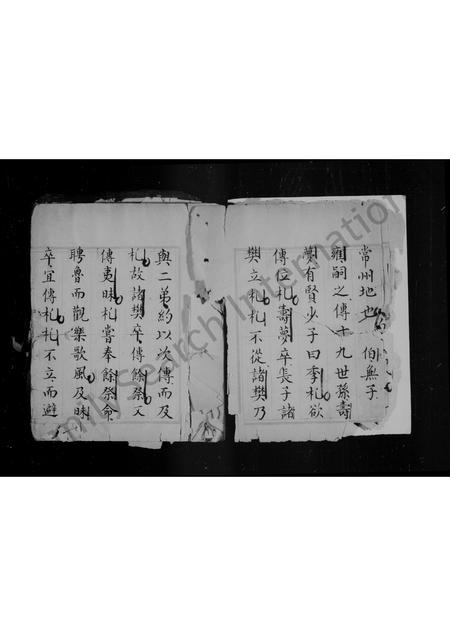 常州地也伯無子
嗣之傳十九世孫壽
夢有賢少子曰季札欲
傳位札壽夢卒長子諸
樊立札札不從諸樊乃
與二弟約以次傳而及
札故諸樊卒傳餘祭又
傳夷昧札嘗奉餘祭命
聘魯而觀樂歌風及昧
卒宜傳札札不立而避
Family Search International